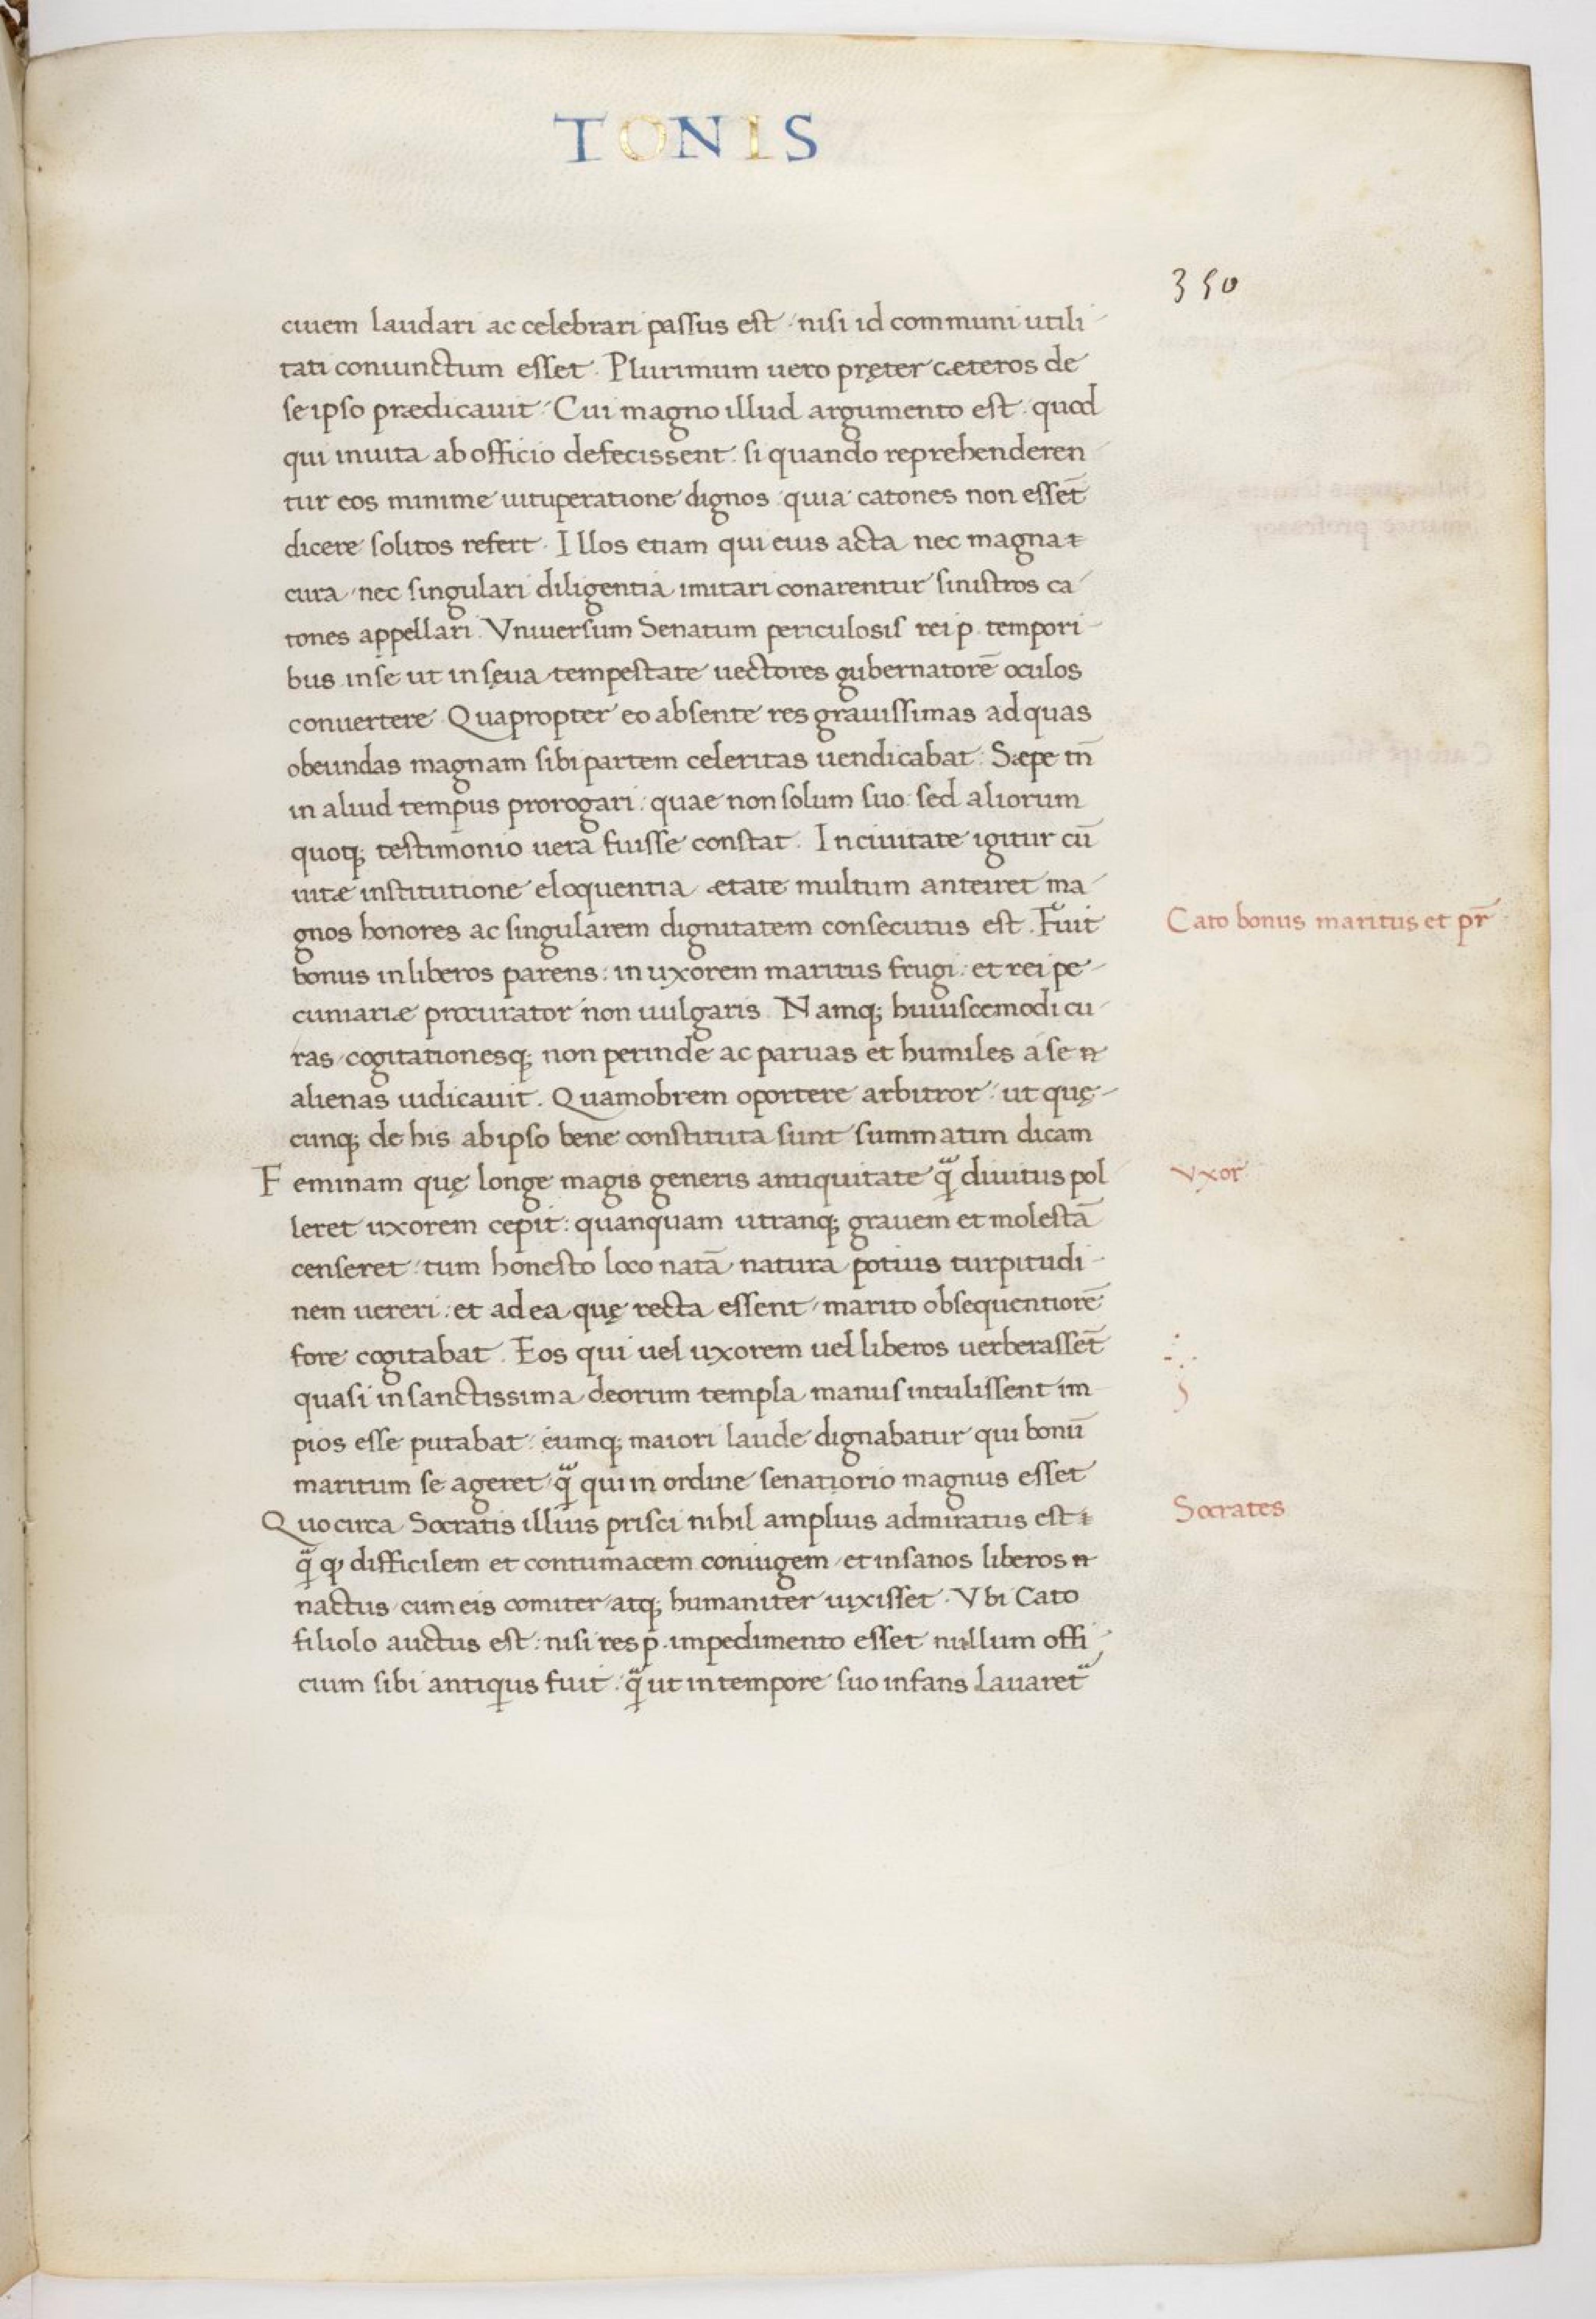 TONIS
350
ciuem laudari ac celebrari passus est · nisi id communi utili-
tati coniunctum esset · Plurimum uero pręter cæteros de
se ipso prædicauit · Cui magno illud argumento est · quod
qui inuita ab officio defecissent · si quando reprehenderen-
tur eos minime uituperatione dignos · quia catones non essēt
dicere solitos refert · Illos etiam qui eius acta nec magna
cura · nec singulari diligentia imitari conarentur sinistros ca-
tones appellari · Vniuersum Senatum periculosis rei p. tempori-
bus in se ut in sęua tempestate uectores gubernatorē oculos
conuertere · Quapropter eo absente res grauissimas ad quas
obeundas magnam sibi partem celeritas uendicabat · Sæpe tn̄
in aliud tempus prorogari : quae non solum suo · sed aliorum
quoq; testimonio uera fuisse constat · In ciuitate igitur cū
uitæ institutione eloquentia ætate multum anteiret ma-
gnos honores ac singularem dignitatem consecutus est · Fuit
Cato bonus maritus et pr̄
bonus in liberos parens : in uxorem maritus frugi : et rei pe-
cuniariæ procurator non uulgaris · Namq; huiuscemodi cu-
ras cogitationesq; non perinde ac paruas et humiles a se
alienas iudicauit · Quamobrem oportere arbitror · ut quę-
cunq; de his ab ipso bene constituta sunt summatim dicam
Feminam quę longe magis generis antiquitate q̄ diuitiis pol
Vxor
leret uxorem cepit : quanquam utranq; grauem et molestā
censeret · tum honesto loco natā natura potius turpitudi-
nem uereri : et ad ea quę recta essent · marito obsequentiorē
fore cogitabat · Eos qui uel uxorem uel liberos uerberassēt
quasi in sanctissima deorum templa manus intulissent im-
pios esse putabat : eumq; maiori laude dignabatur qui bonū
maritum se ageret q̄ qui in ordine senatiorio magnus esset
Quocirca Socratis illius prisci nihil amplius admiratus est
Socrates
q̄ ꝙ difficilem et contumacem coniugem · et insanos liberos
nactus · cum eis comiter atq; humaniter uixisset · Vbi Cato
filiolo auctus est : nisi res p. impedimento esset nullum offi-
cium sibi antiquius fuit : q̄ ut in tempore suo infans lauaret᷑